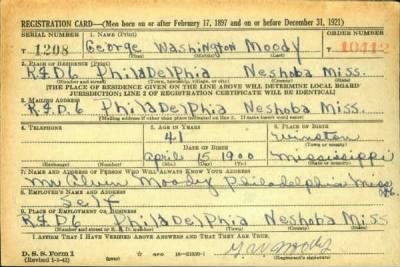 REGISTRATION CARD—(Men born on or after February 17, 1897 and on or before December 31, 1921)
SERIAL NUMBER 1. NAME (Print) ORDER NUMBER
T 1208 George Washington Moody 10412
(First) (Middle) (Last)
2. PLACE OF RESIDENCE (Print)
R&D6 PhilaDelphia Neshoba Miss.
(Number and street) (Town, township, village, or city) (County) (State)
[THE PLACE OF RESIDENCE GIVEN ON THE LINE ABOVE WILL DETERMINE LOCAL BOARD
JURISDICTION; LINE 2 OF REGISTRATION CERTIFICATE WILL BE IDENTICAL]
3. MAILING ADDRESS
R&D.6 PhilaDelphia Neshoba Miss.
[Mailing address if other than place indicated on line 2. If same insert word same]
4. TELEPHONE 5. AGE IN YEARS 6. PLACE OF BIRTH
41 Winston
DATE OF BIRTH (Town or county)
April 15 1900 Mississippi
(Exchange) (Number) (Mo.) (Day) (Yr.) (State or country)
7. NAME AND ADDRESS OF PERSON WHO WILL ALWAYS KNOW YOUR ADDRESS
Moody Philadelphia Miss
8. EMPLOYER'S NAME AND ADDRESS
Self
9. PLACE OF EMPLOYMENT OR BUSINESS
R&D6 PhilaDelphia Neshoba Miss
(Number and street or R. F. D. number) (Town) (County) (State)
I AFFIRM THAT I HAVE VERIFIED ABOVE ANSWERS AND THAT THEY ARE TRUE.
D. S. S. Form 1
(Revised 1-1-42) (over) G.W. Moody
(Registrant's signature)